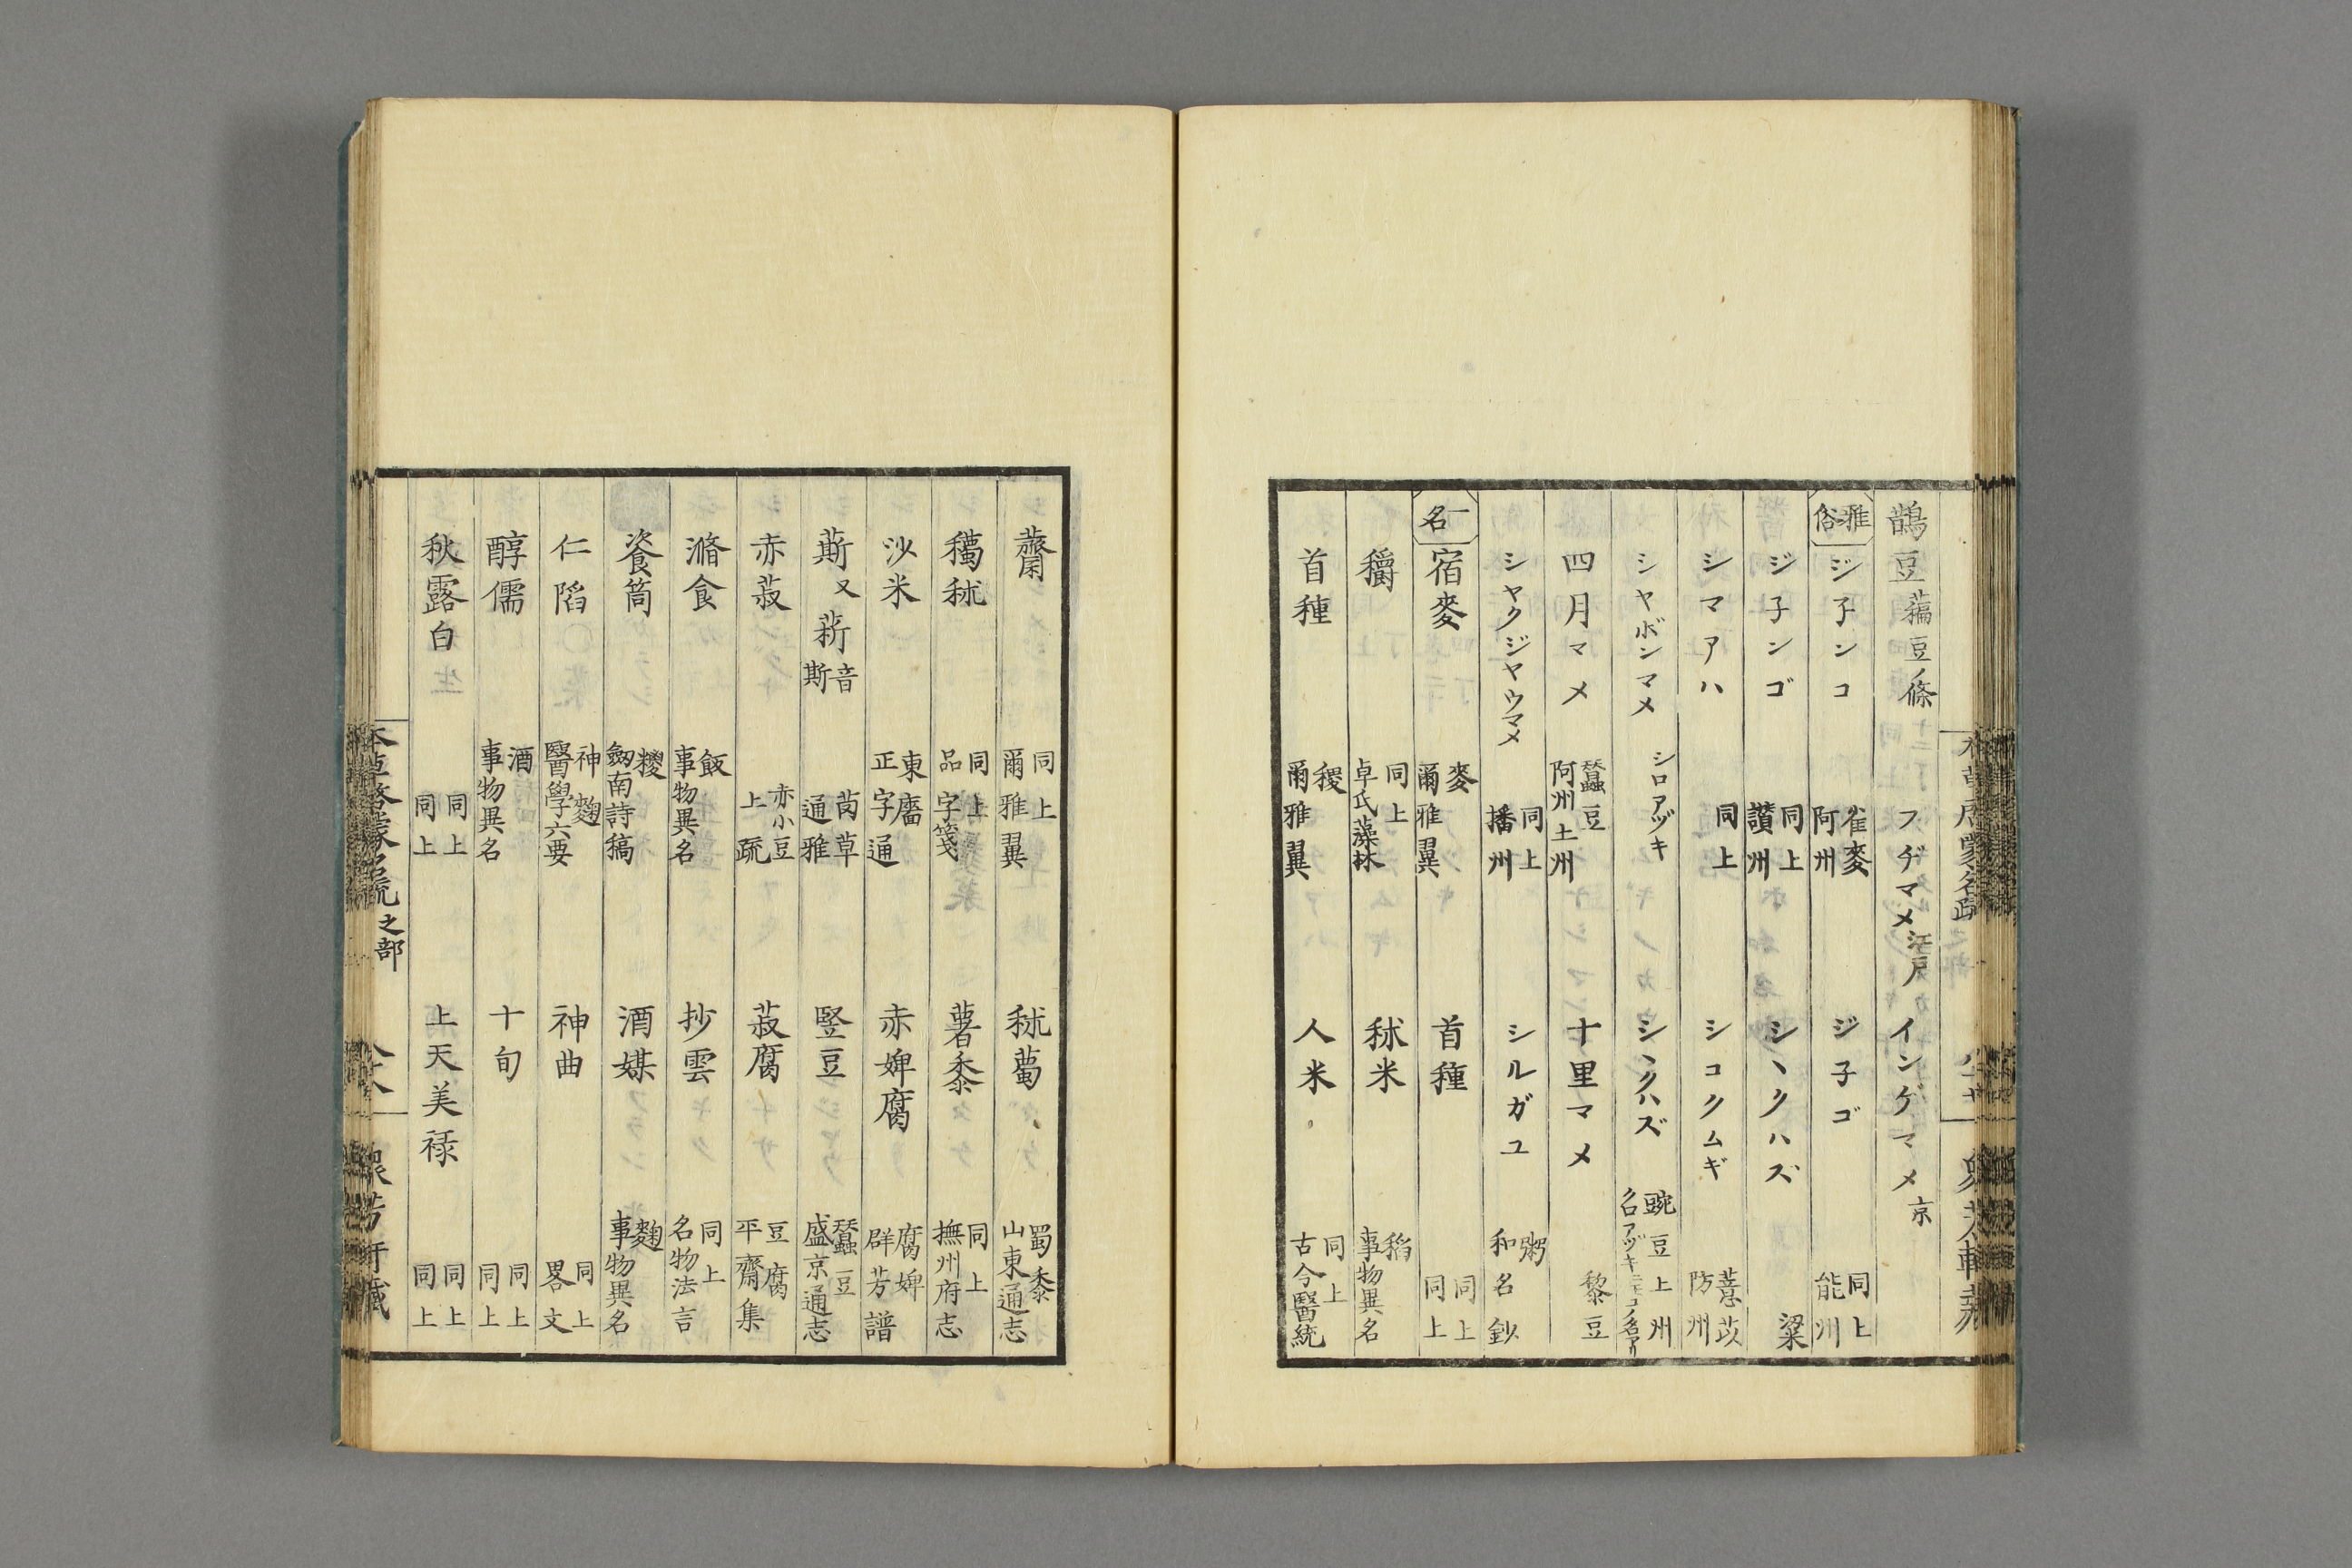 鵲豆 藊豆ノ條 フヂマメ 江戸 インゲマメ 京
雅俗 ジ子ンコ 雀麥 阿州 ジ子ゴ 同上 能州
ジ子ンゴ 同上 讃州 シヽクハズ 粱
シマアハ 同上 シコクムギ 薏苡 防州
シヤボンマメ シロアヅキ シヽクハズ 豌豆上州
四月マメ 蠶豆 阿州土州 十里マメ 黎豆
シヤクジヤウマメ 同上 播州 シルガユ 粥 和名鈔
一名 宿麥 麥 爾雅翼 首種 同上 同上
穱 同上 卓氏藻林 秫米 稻 事物異名
首種 稷 爾雅翼 人米 同上 古今醫統
同上 爾雅翼 秫薥 蜀黍 山東通志
穱秫 同上 品字箋 薯黍 同上 撫州府志
沙米 東廧 正字通 赤婢腐 腐婢 群芳譜
蔪 又 菥 音斯 𦯉草 通雅 豎豆 蠶豆 盛京通志
赤菽 赤小豆 上疏 菽腐 豆腐 平齋集
滫食 飯 事物異名 抄雲 同上 名物法言
餈筒 糉 劒南詩稿 酒媒 麴 事物異名
仁䧟 神麴 醫學六要 神曲 同上 畧文
醇儒 酒 事物異名 十旬 同上 同上
秋露白 同上 同上 上天美祿 同上 同上
本草啓蒙名疏 之部